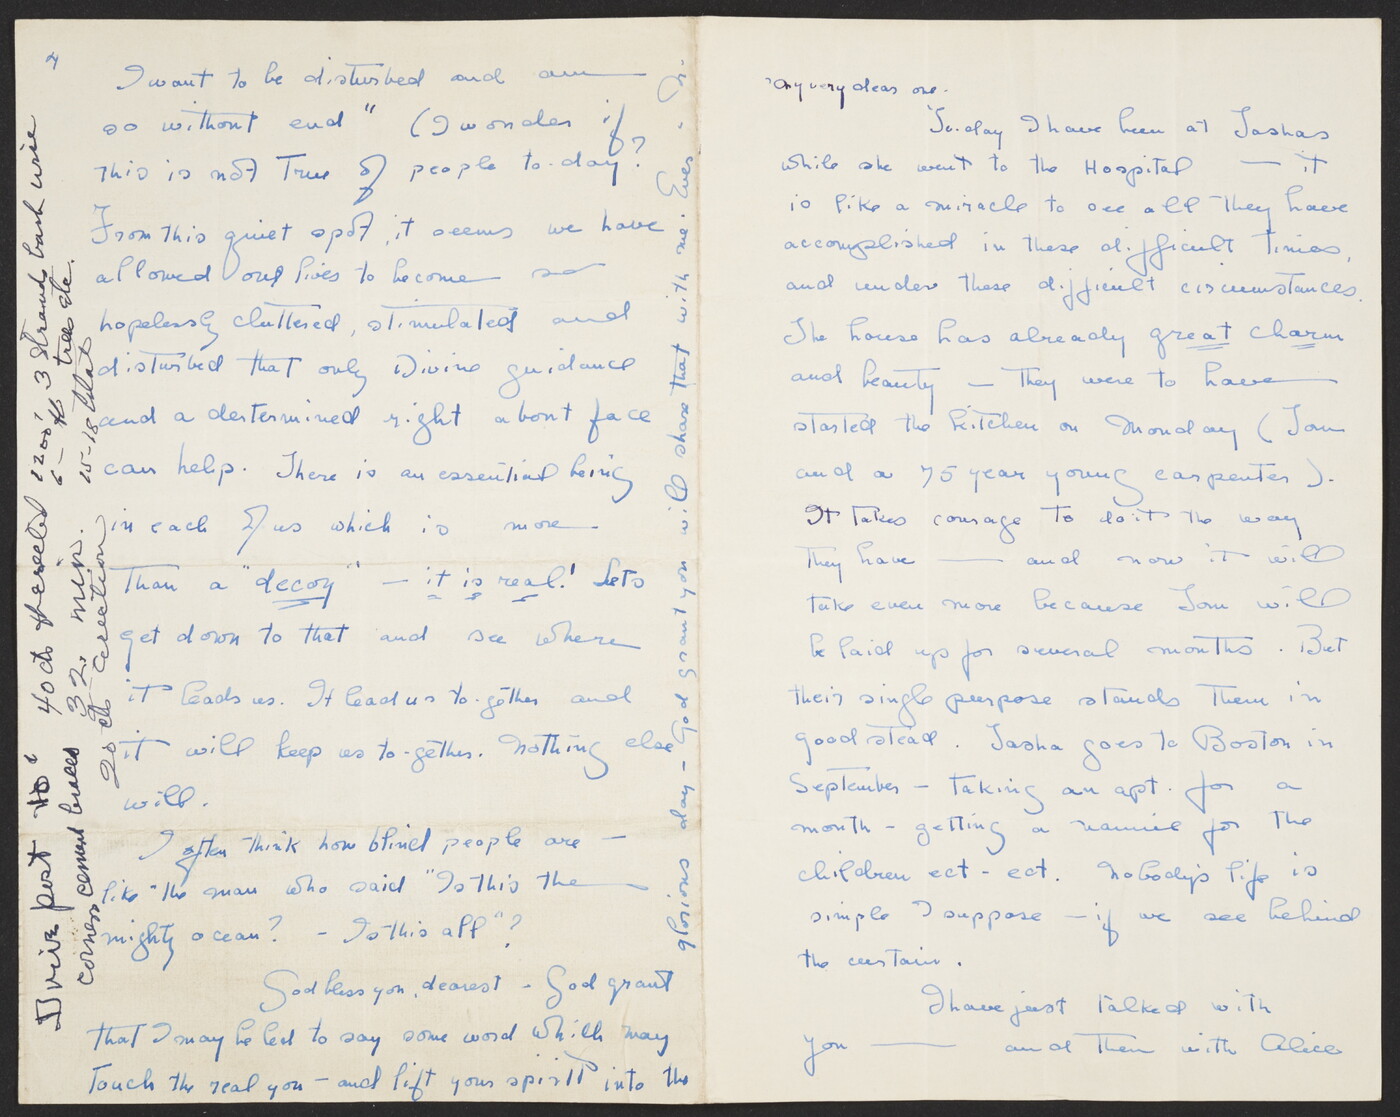 My very dear one.
To-day I have been at Tashas
while she went to the Hospital — it
is like a miracle to see all they have
accomplished in these difficult times,
and under these difficult circumstances.
The house has already great charm
and beauty — They were to have
started the kitchen on Monday (Tom
and a 75 year young carpenter).
It takes courage to do it the way
they have — and now it will
take even more because Tom will
be laid up for several months. But
their single purpose stands them in
good stead. Tasha goes to Boston in
September — taking an apt. for a
month - getting a nannie for the
children ect - ect. Nobody's life is
simple I suppose — if we see behind
the curtain.
I have just talked with
you — and then with Alice
4
I want to be disturbed and am
so without end" (I wonder if
this is not True of people to-day?
From this quiet spot, it seems we have
allowed our lives to become so
hopelessly cluttered, stimulated and
disturbed that only Divine guidance
and a dertermined right about face
can help. There is an essential being
in each of us which is more
than a "decoy" — it is real! Lets
get down to that and see where
it leads us. It lead us to-gether and
it will keep us to-gether. Nothing else
will.
I often think how blind people are —
like the man who said "Is this the
mighty ocean? - Is this all"?
God bless you, dearest - God grant
that I may be led to say some word which may
Touch the real you — and lift your spirit into the
glorious day — God grant you will share that with me. Ever -
Drive post 10' 40 cts 1200' 3 Strand barb wire
corner cement braces 32. min. 6 - trees etc.
20 cts creation 15-18